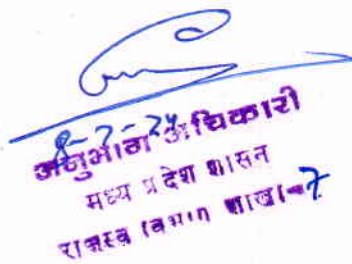 8-7-24
अनुभाग अधिकारी
मध्य प्रदेश शासन
राजस्व विभाग शाखा-7